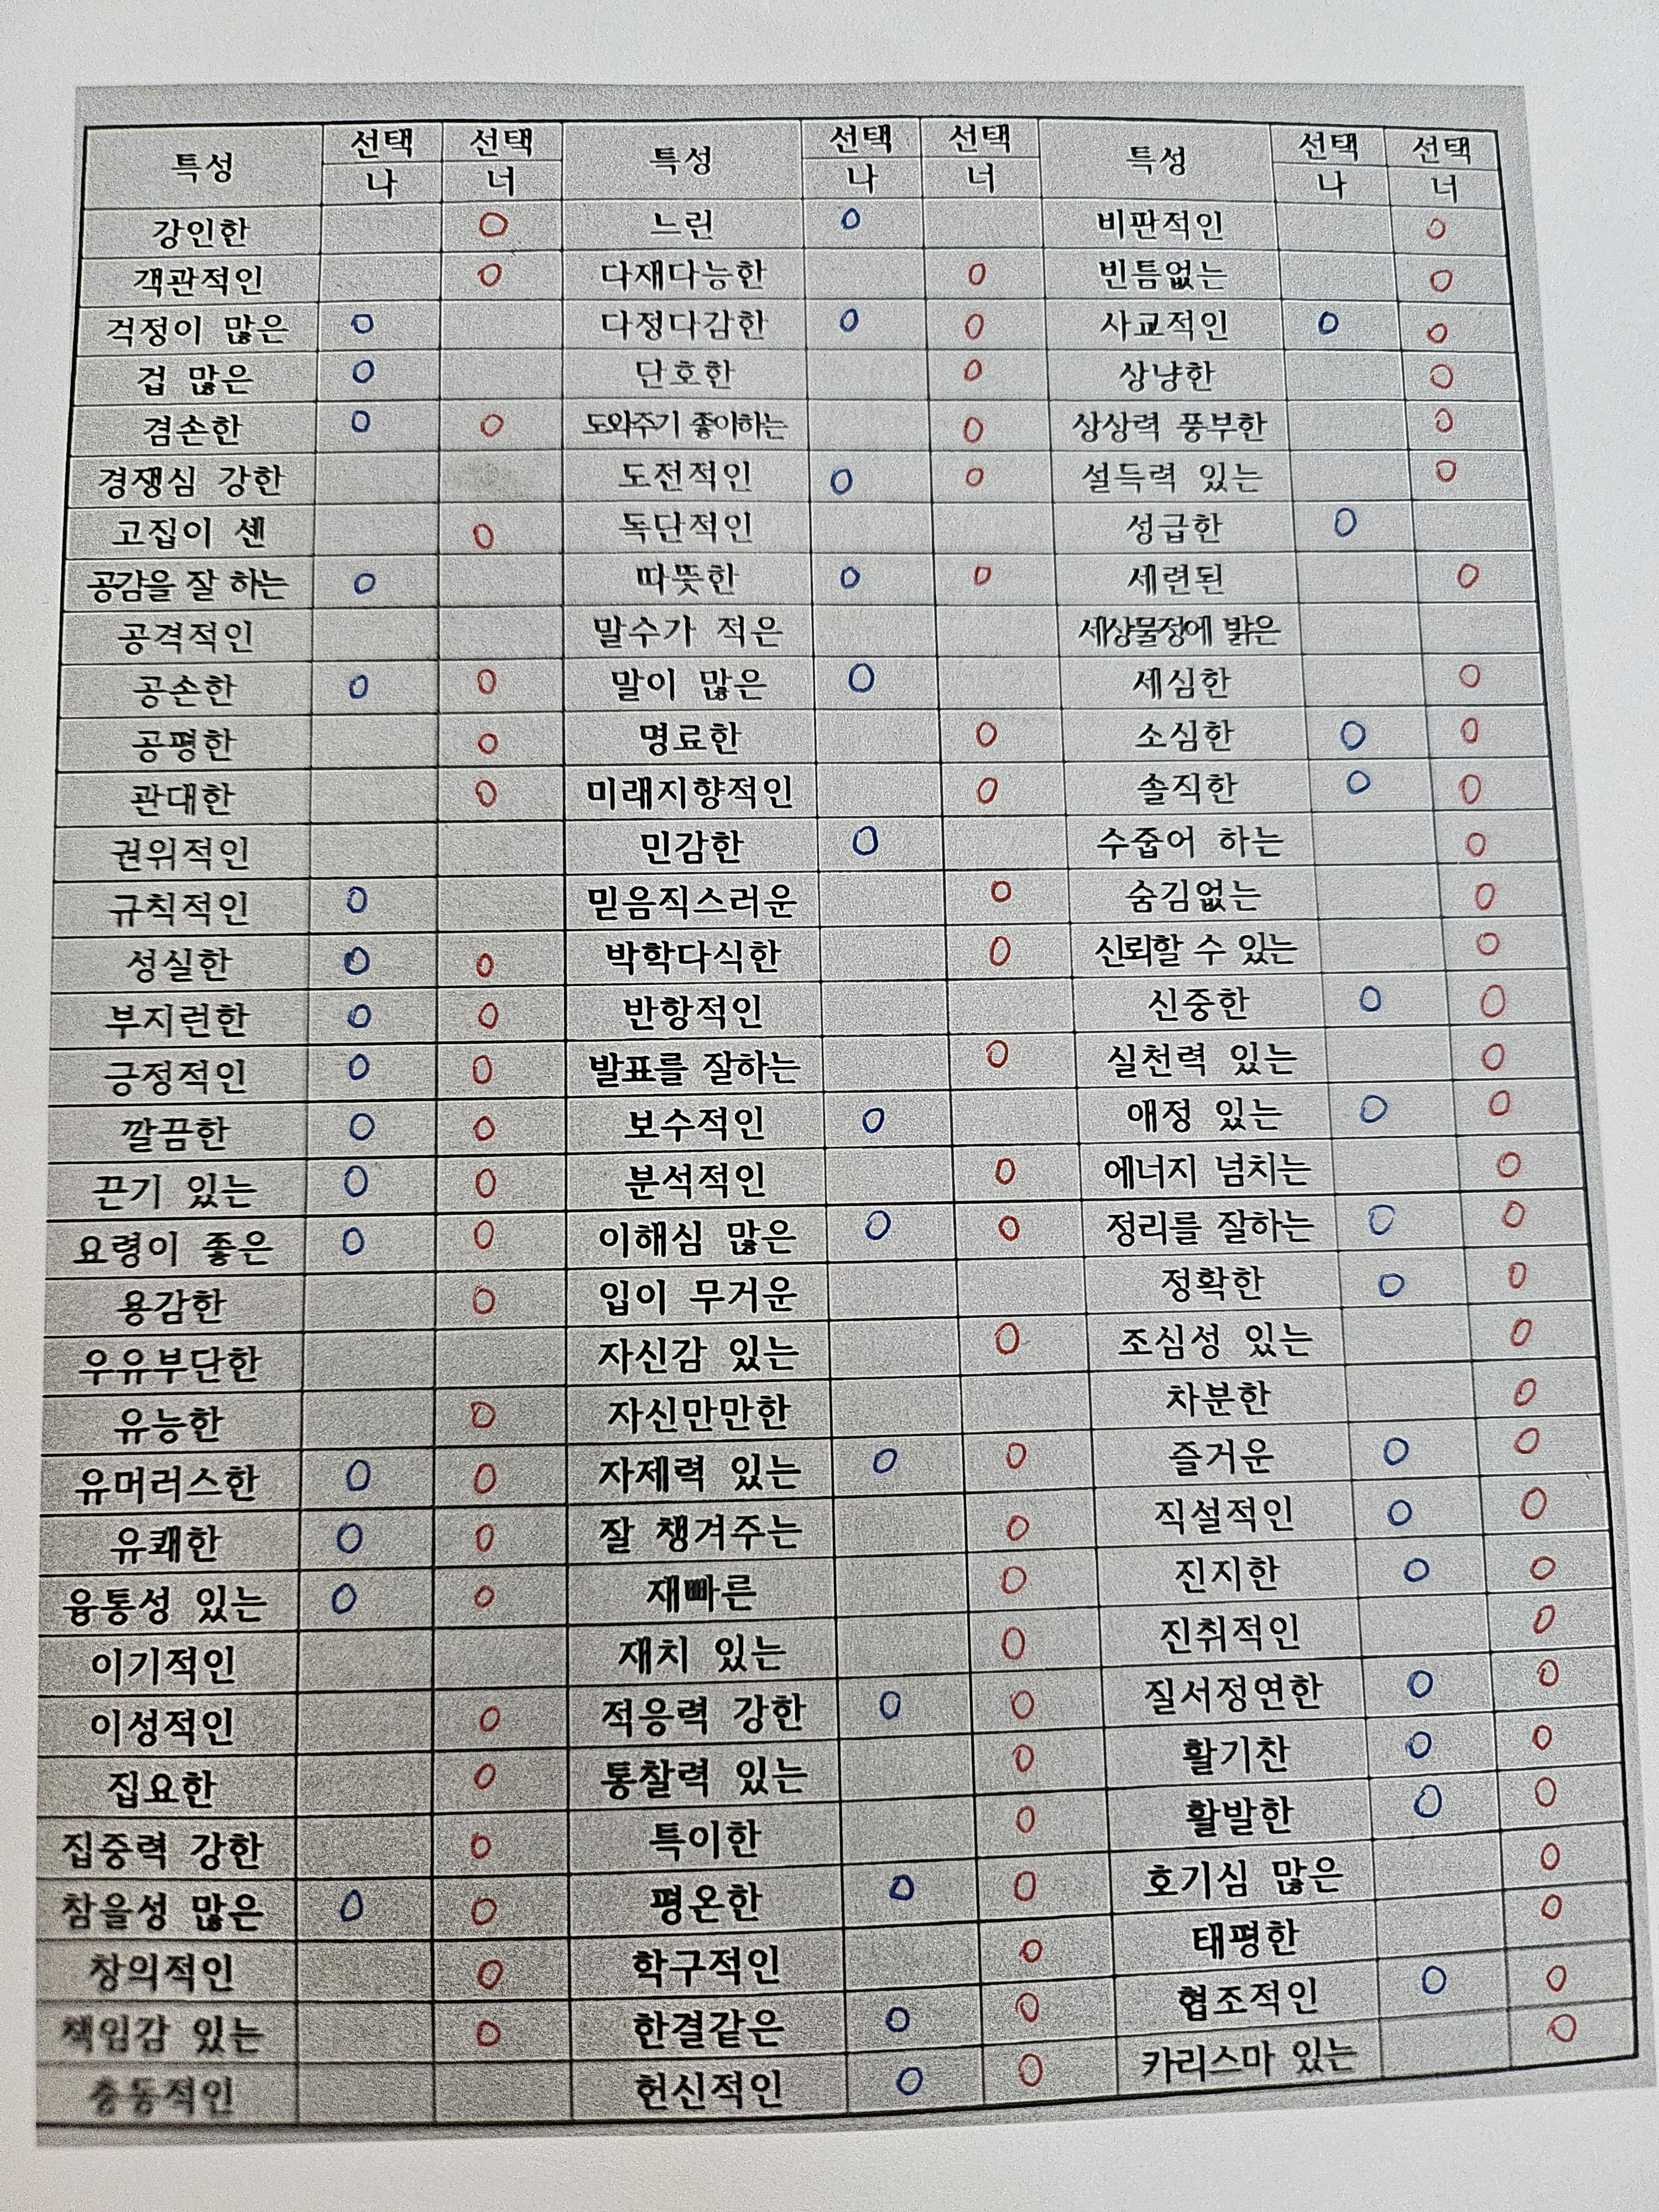 특성 선택 선택 특성 선택 선택 특성 선택 선택
나 너 나 너 나 너
강인한 O 느린 O 비판적인 O
객관적인 O 다재다능한 O 빈틈없는 O
걱정이 많은 O 다정다감한 O O 사교적인 O O
겁 많은 O 단호한 O 상냥한 O
겸손한 O O 도와주기 좋아하는 O 상상력 풍부한 O
경쟁심 강한 도전적인 O O 설득력 있는 O
고집이 센 O 독단적인 성급한 O
공감을 잘 하는 O 따뜻한 O O 세련된 O
공격적인 말수가 적은 세상물정에 밝은
공손한 O O 말이 많은 O 세심한 O
공평한 O 명료한 O 소심한 O O
관대한 O 미래지향적인 O 솔직한 O O
권위적인 민감한 O 수줍어 하는 O
규칙적인 O 믿음직스러운 O 숨김없는 O
성실한 O O 박학다식한 O 신뢰할 수 있는 O
부지런한 O O 반항적인 신중한 O O
긍정적인 O O 발표를 잘하는 O 실천력 있는 O
깔끔한 O O 보수적인 O 애정 있는 O O
끈기 있는 O O 분석적인 O 에너지 넘치는 O
요령이 좋은 O O 이해심 많은 O O 정리를 잘하는 O O
용감한 O 입이 무거운 정확한 O O
우유부단한 자신감 있는 O 조심성 있는 O
유능한 O 자신만만한 차분한 O
유머러스한 O O 자제력 있는 O O 즐거운 O O
유쾌한 O O 잘 챙겨주는 O 직설적인 O O
융통성 있는 O O 재빠른 O 진지한 O O
이기적인 재치 있는 O 진취적인 O
이성적인 O 적응력 강한 O O 질서정연한 O O
집요한 O 통찰력 있는 O 활기찬 O O
집중력 강한 O 특이한 O 활발한 O O
참을성 많은 O O 평온한 O O 호기심 많은 O
창의적인 O 학구적인 O 태평한 O
책임감 있는 O 한결같은 O O 협조적인 O O
충동적인 헌신적인 O O 카리스마 있는 O